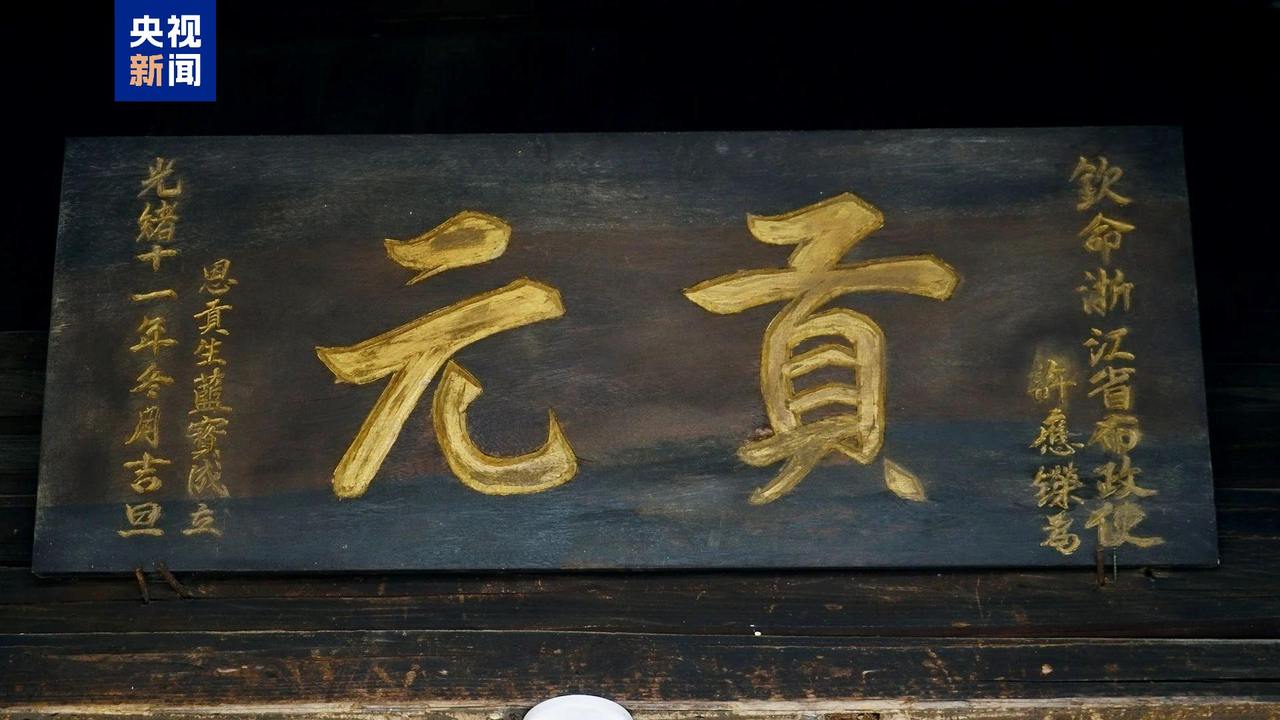 央视
新闻
欽命浙江省布政使
許應鑅爲
貢元
恩貢生藍寶成立
光緒十一年冬月吉旦